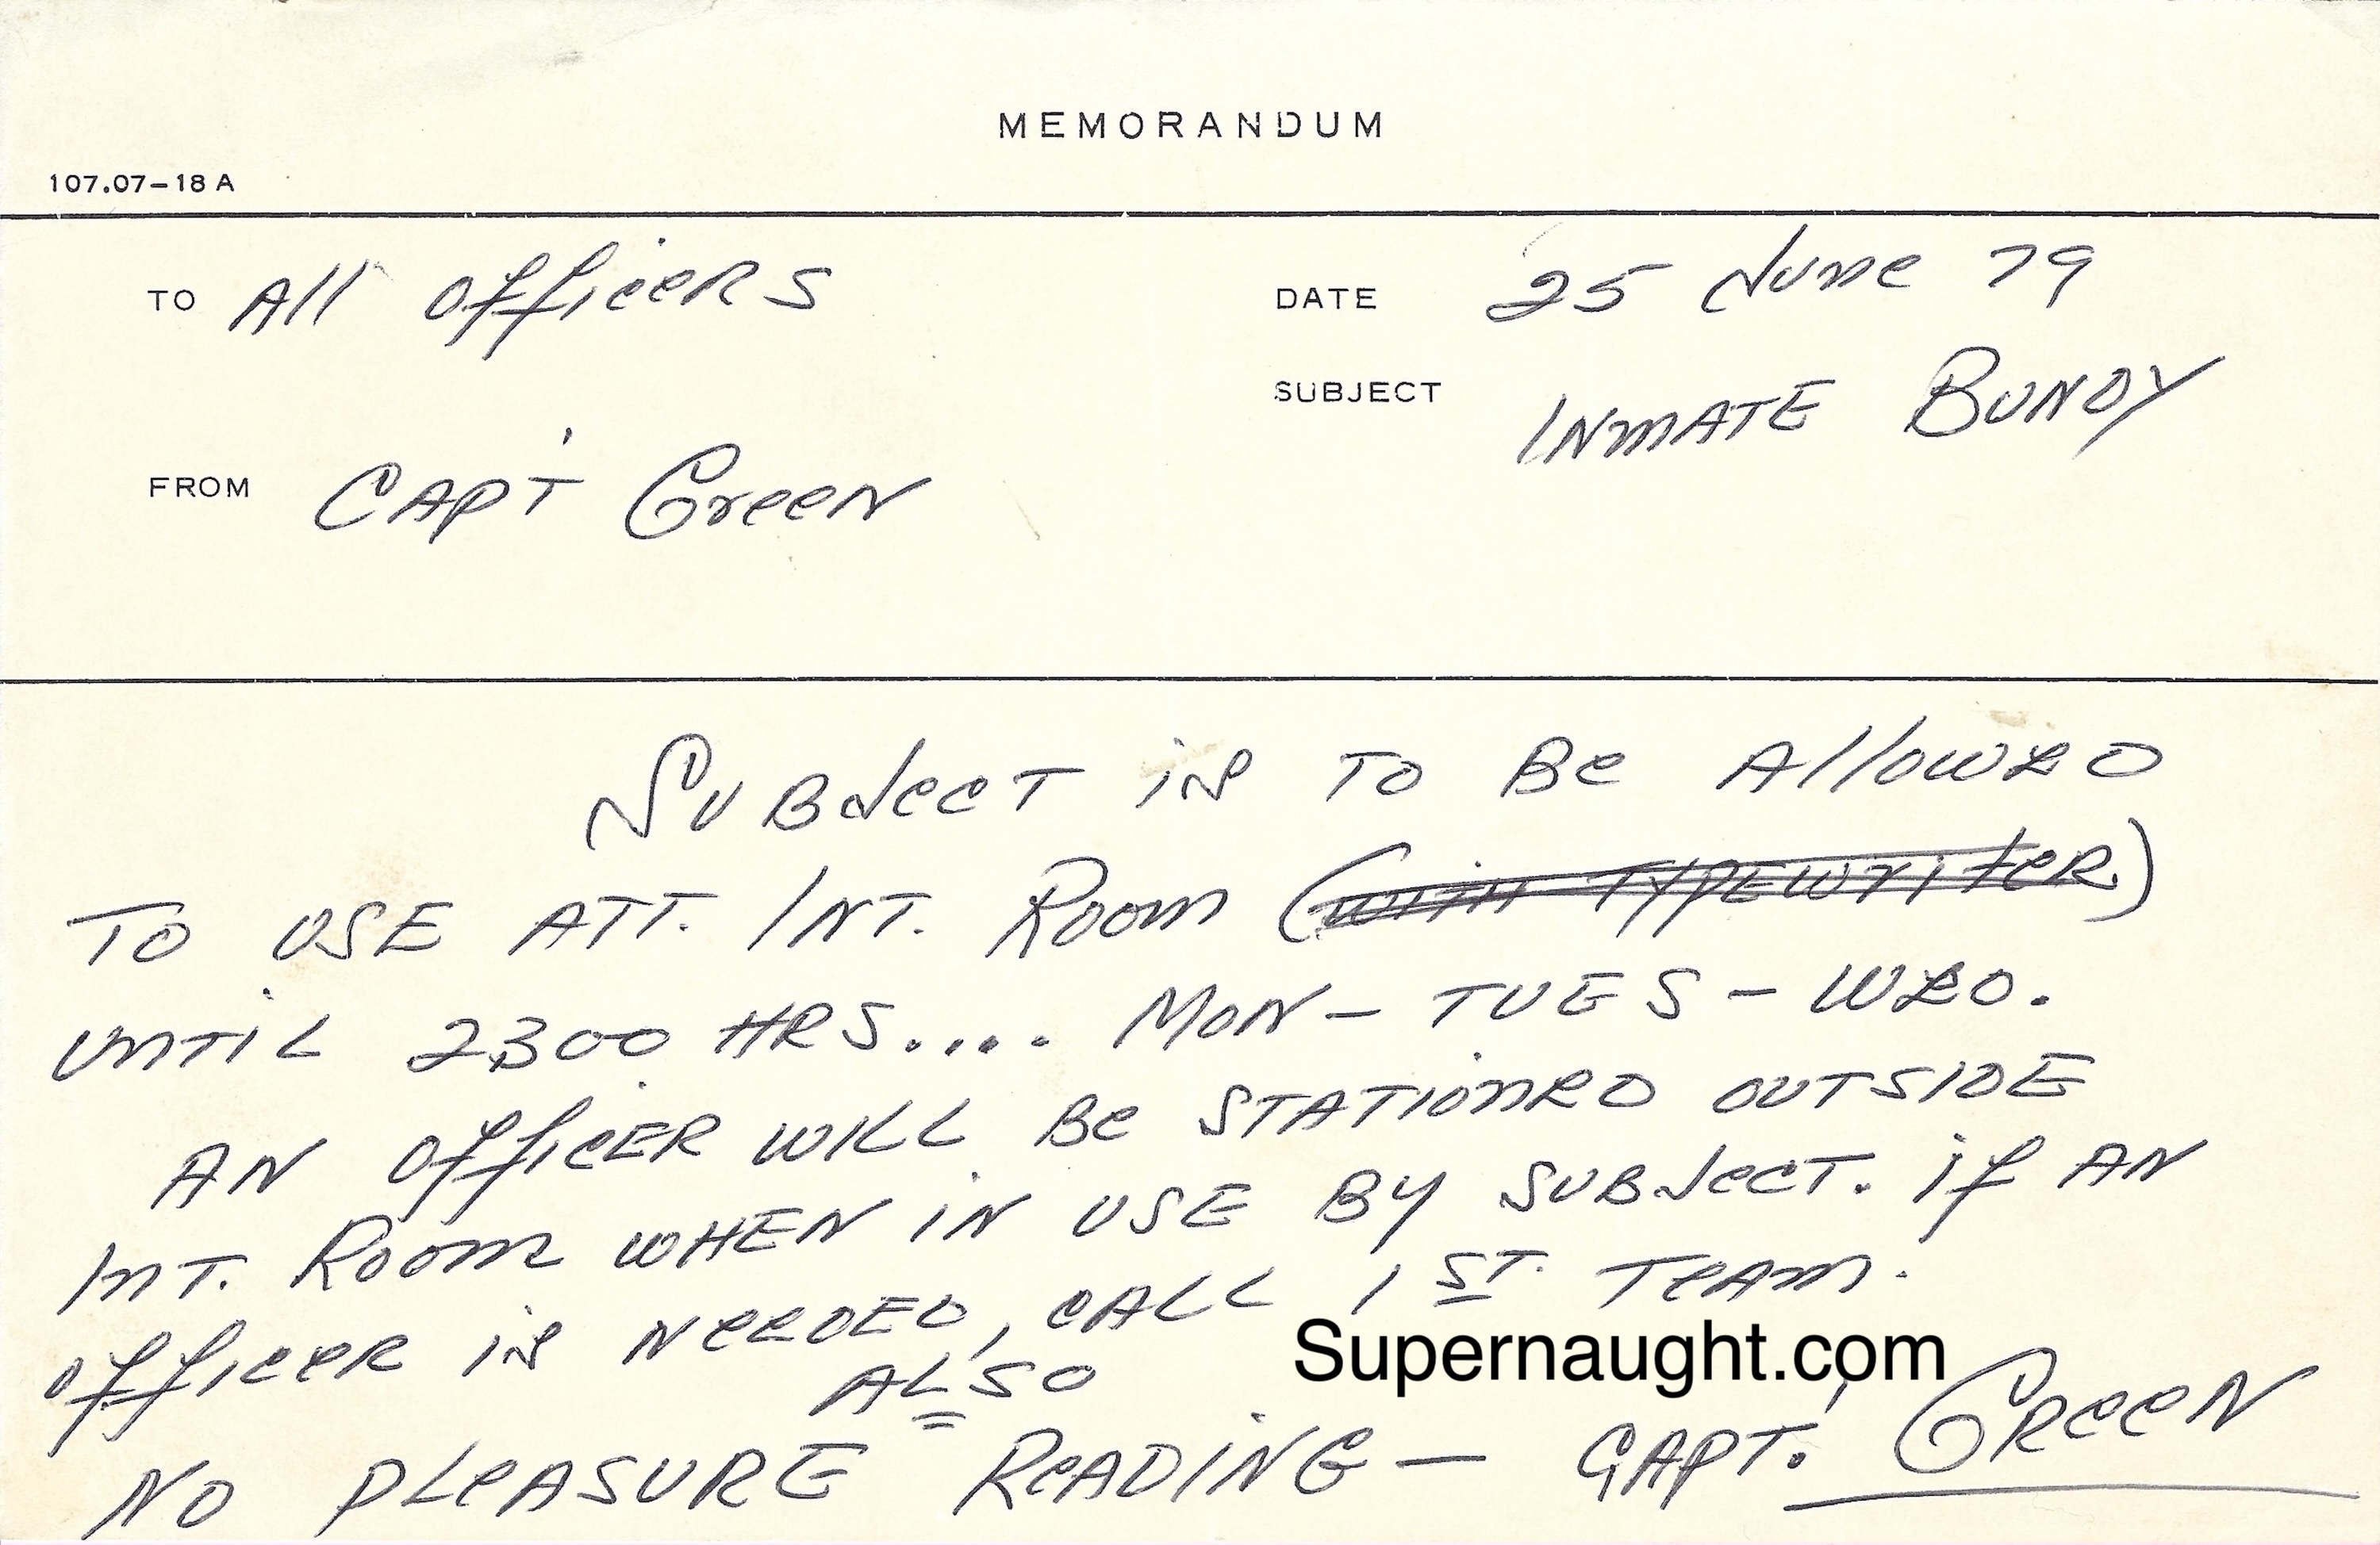 MEMORANDUM
107.07-18 A
TO All OfficeRS
DATE 25 June 79
SUBJECT INMATE BUNDY
FROM CAPT Green
SUBJECT is TO Be AllowED
TO USE ATT. INT. Room (with TYPEWRITER)
UNTIL 2300 HRS.... MON- TUES - WED.
AN OfficER WILL Be STATIONED OUTSIDE
INT. Room WHEN IN USE BY SUBJECT. if AN
OfficeR is NEEDED, CALL 1ST. TEAM.
ALSO
Supernaught.com
NO PLEASURE READING - CAPT. GREEN